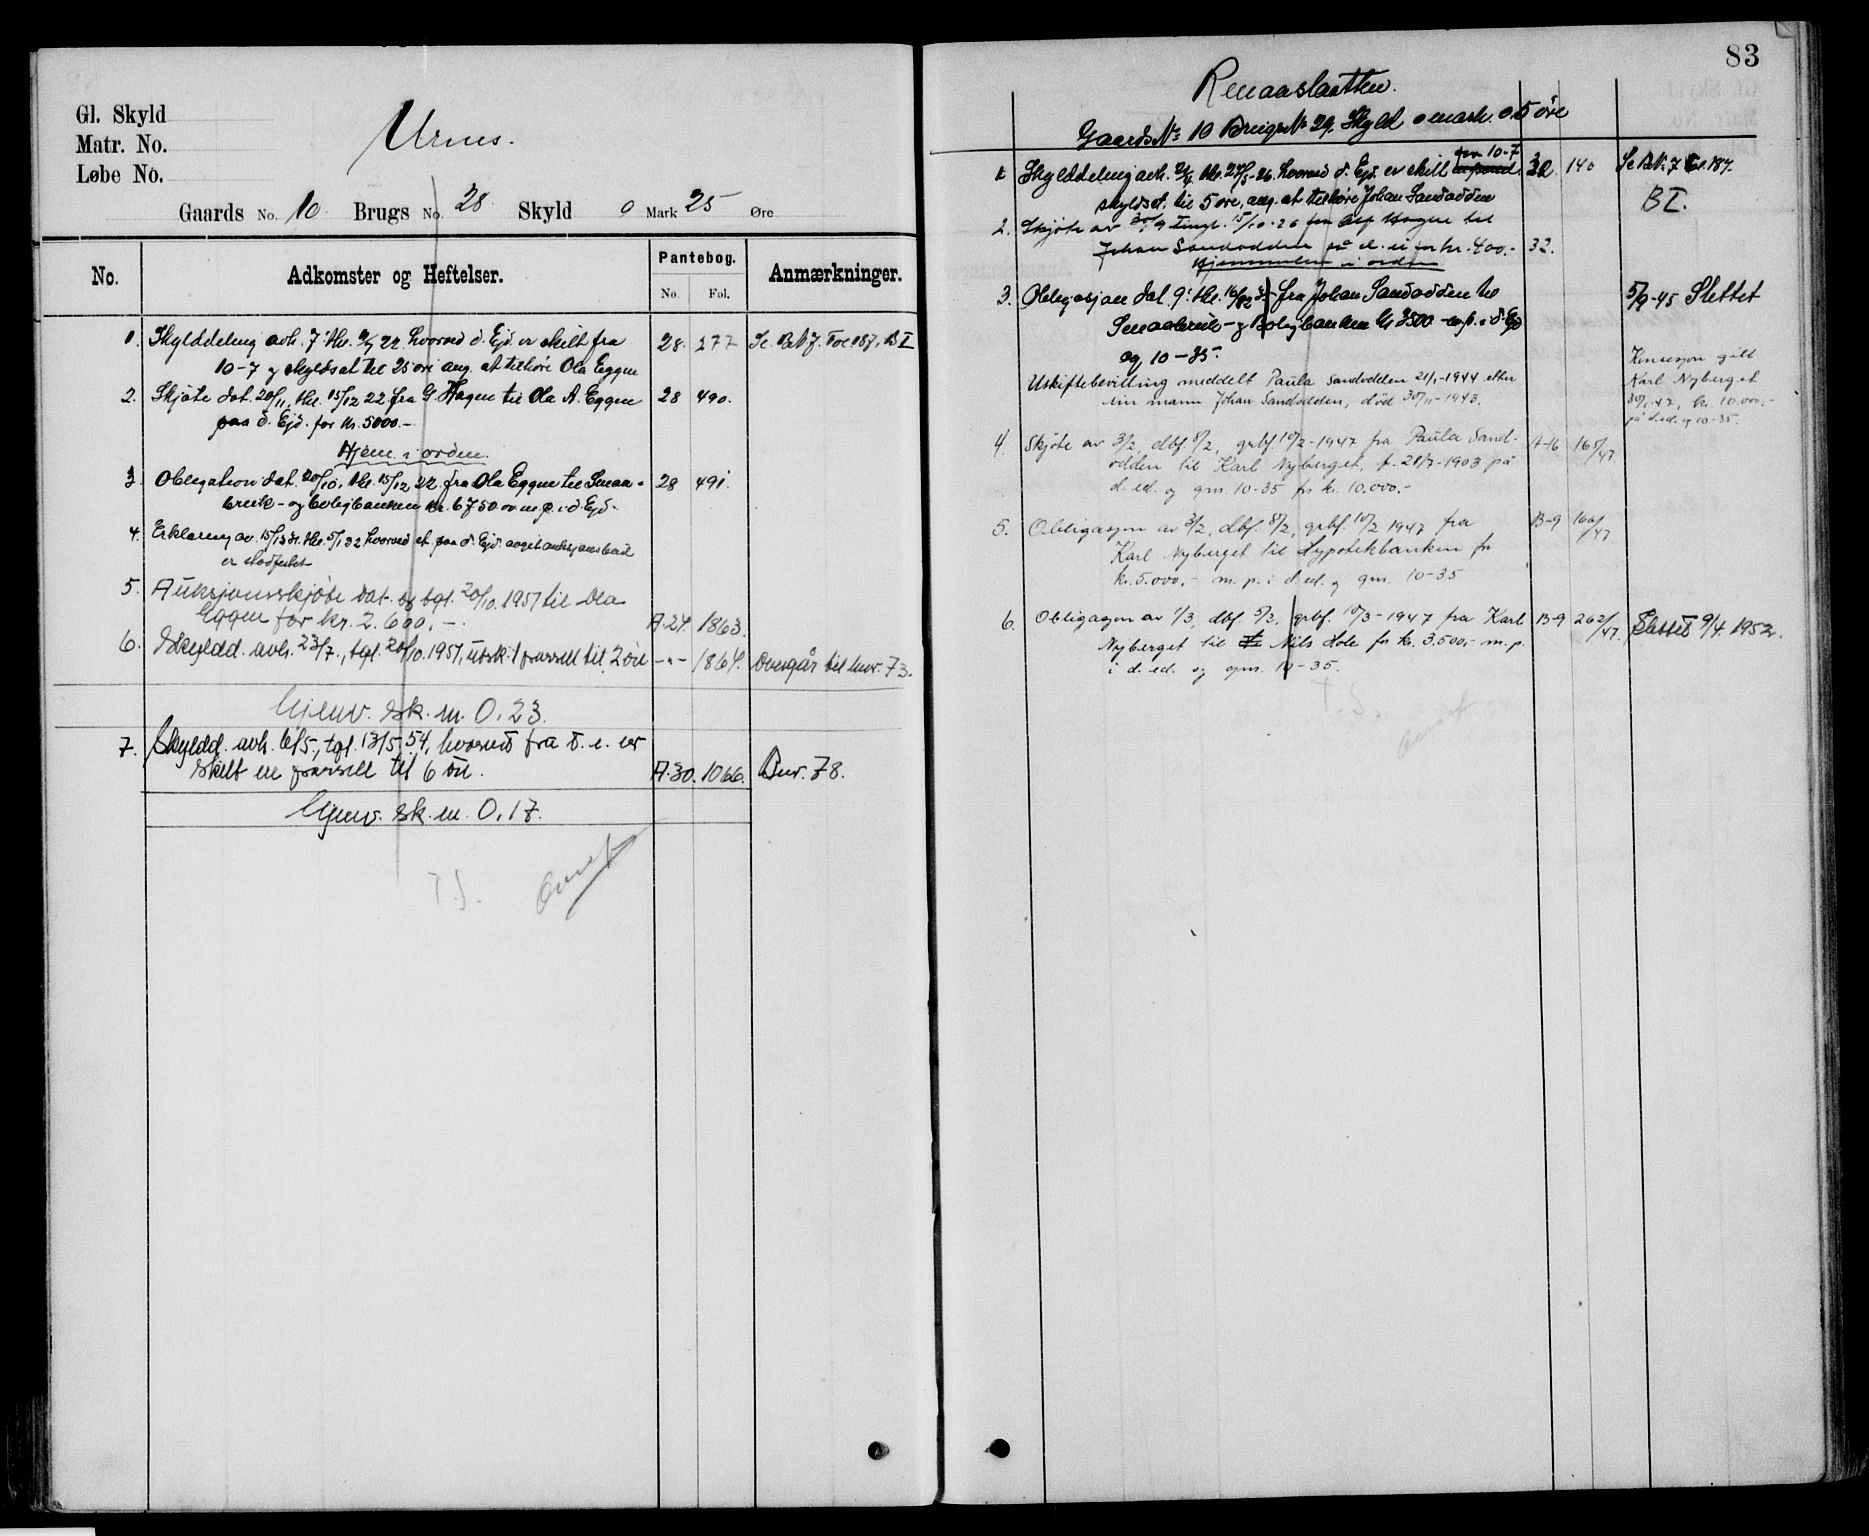 Gl. Skyld
Matr. No.
Løbe No.
Urnes.
Gaards No. 10 Brugs No. 28 Skyld 0 Mark 25 Øre
No.
Adkomster og Heftelser.
Pantebog.
No. Fol.
Anmærkninger.
1. Skylddeling avh. 7. thl. 22 hvorved d. Ejd. er skilt fra 28. 277 Se B.N. 7. Fol 187. B I
10-7 og skyldsat til 25 øre ang. at tilhøre Ola Eggen
2. Skjøte dat. 20/11, thl. 15/12 22 fra G. Hagen til Ola A. Eggen 28 490.
paa d. Ejd. for kr. 5000.-
Hjem. i orden.
3. Obligation dat. 20/10, thl. 15/12 22. fra Ola Eggen til Smaa- 28 491.
bruk- og boligbanken kr. 6750 m.p. i d. Ejd.
4. Erklæring av 15/12 31. thl. 5/1 32 hvorved et paa d. Ejd. avgit auksjonsbud
er stadfestet
5. Auksjonsskjøte dat. og tgl. 20/10.1951 til Ola
Eggen for kr. 2.600.-. A.24. 1863.
6. Skyldd. avh. 23/7., tgl. 20/10.1951, utsk. 1 parsell til 2 øre -"- 1864. Overgår til bnr. 73.
Gjenv. sk. m. 0.23.
7. Skyldd. avh. 6/5., tgl. 13/5-54, hvorved fra d. e. er
skilt en parsell til 6 øre. A.30. 1066. Bnr. 78.
Gjenv. sk. m. 0.17.
T.S.
83
Renaaslaatten.
Gaards No 10 Brugs No 29. Skyld 0 mark. 0.5 øre
fra 10-7
1. Skylddeling avh. thl. 26. hvorved d. Ejd. er skilt 32. 140 Se B.N. 7 Fol. 187.
skyldsat. til 5 øre, ang. at tilhøre Johan Sandodden B I.
2. Skjøte av 30/9 tingl. 15/10-26 fra Hagen til
Johan Sandodden på d. e. for kr. 400.- 32.
Hjemmelen i orden
3. Obligasjon dat. thl. fra Johan Sandodden til 5/9-45 Slettet
Smaabruk- og Boligbanken kr. 3500 m.p. i d. Ejd
og 10-35.
Uskiftebevilling meddelt Paula Sandodden 21/1-1944 etter
sin mann Johan Sandodden, død 30/11-1943.
Konsesjon gitt
Karl Nyberget
30/1-47, kr. 10.000.-
på d.ed. og 10-35.
4. Skjøte av 3/2, dbf. 8/2, grbf. 10/2-1947 fra Paula Sand- A-16 165/47.
odden til Karl Nyberget, f. 28/7-1903 på
d. ed. og gnr. 10-35 for kr. 10.000.-
5. Obligasjon av 3/2, dbf. 8/2, grbf. 10/2 1947 fra B-9 166/47
Karl Nyberget til Hypotekbanken for
kr. 5.000.- m. p. i d. ed. og gnr. 10-35
6. Obligasjon av 1/3, dbf. 5/3, grbf. 10/3-1947 fra Karl B-9 262/47. Slettet 9/4. 1952.
Nyberget til Nils Hole for kr. 3.500,- m.p.
i d. ed. og gnr. 10-35.
T.S.